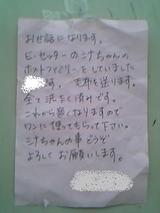 お世話になります。
ビ・セッターのシナちゃんの
ホストファミリーをしていました
です。毛布を送ります。
全て洗たく済みです。
これから寒くなりますので
ワンに使ってもらって下さい。
シナちゃんの事どうぞ
よろしくお願いします。